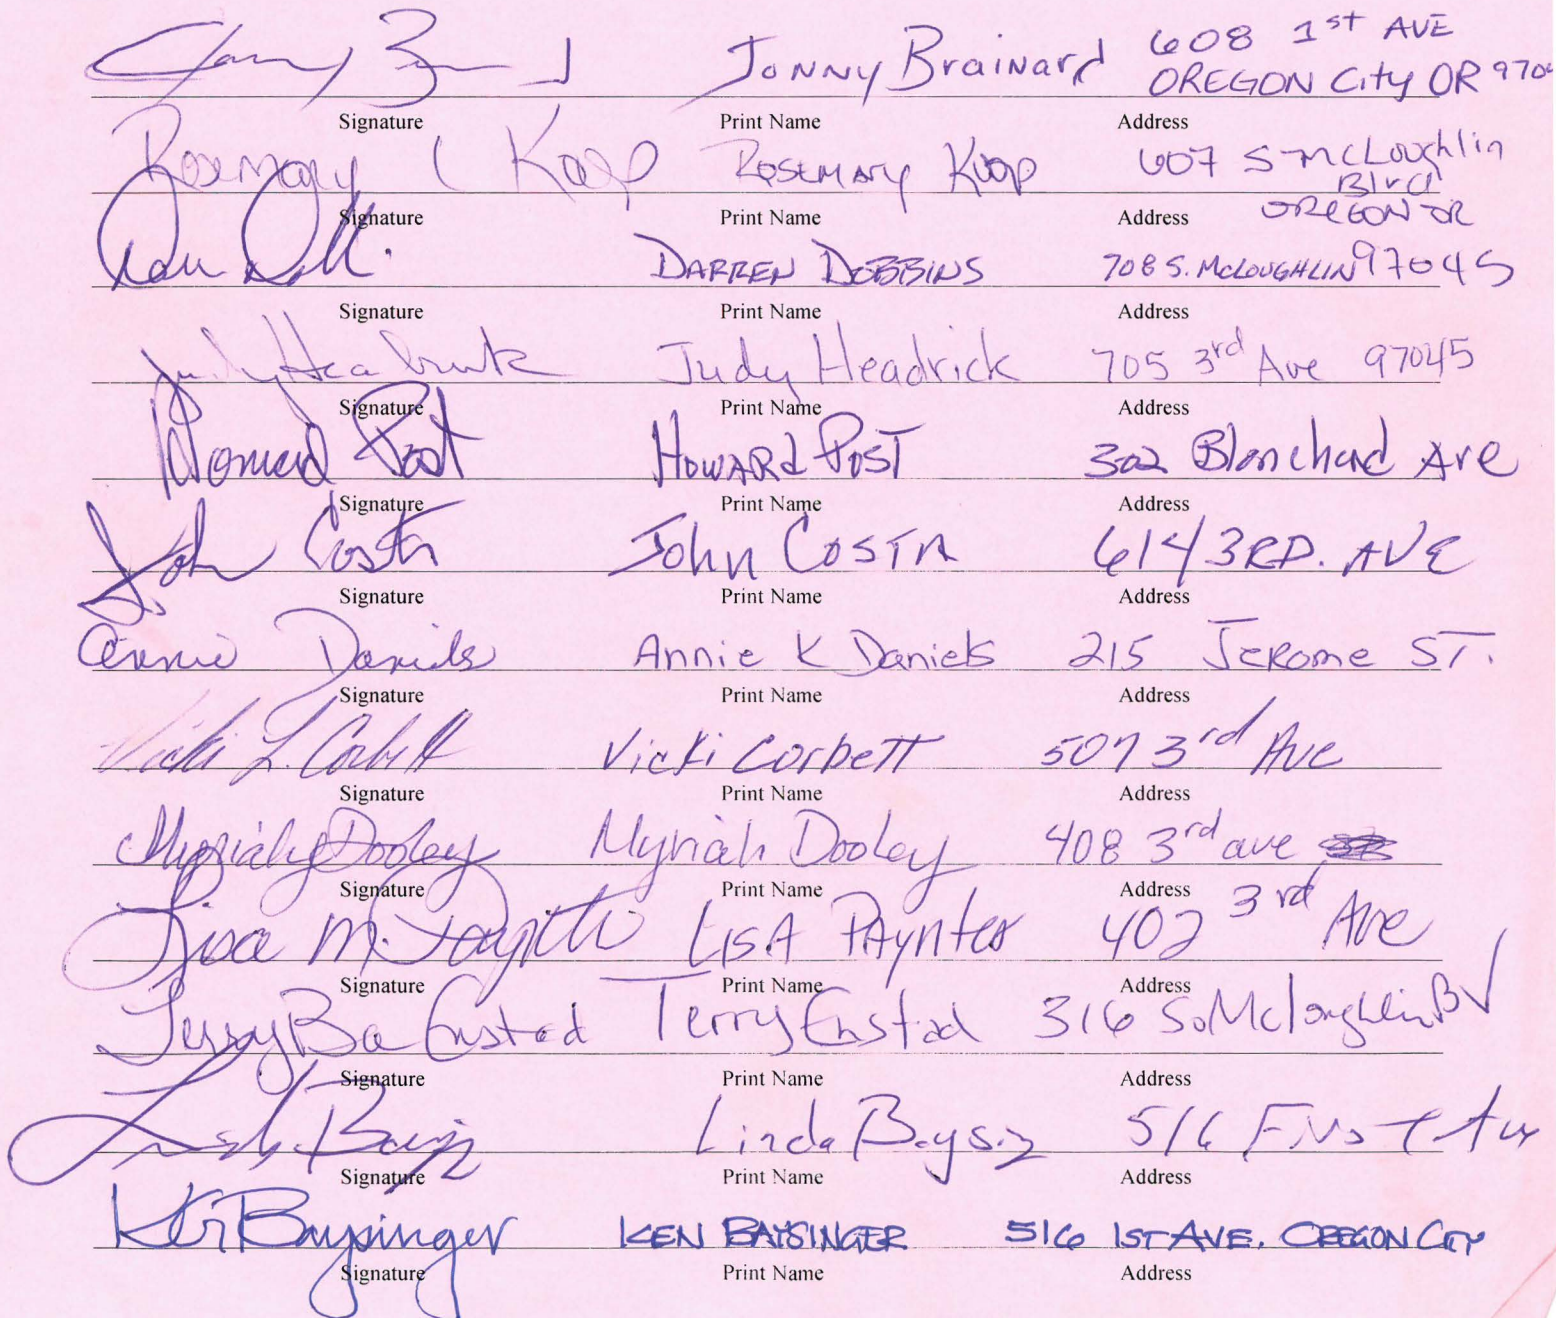 Jonny Brainard 608 1st AVE
OREGON City OR 970
Signature Print Name Address
Rosemary Koop Rosemary Koop 607 S McLoughlin
Blvd
Signature Print Name Address OREGON OR
DARREN DOBBINS 708 S. McLOUGHLIN 97045
Signature Print Name Address
Judy Headrick Judy Headrick 705 3rd Ave 97045
Signature Print Name Address
Howard Post HOWARD POST 302 Blanchard Ave
Signature Print Name Address
John Costa John COSTA 614 3RD. AVE
Signature Print Name Address
Annie Daniels Annie K Daniels 215 JEROME ST.
Signature Print Name Address
Vicki L. Corbett Vicki Corbett 507 3rd Ave
Signature Print Name Address
Myriah Dooley Myriah Dooley 408 3rd ave
Signature Print Name Address
Lisa M. Paynter LISA PAynter 402 3rd Ave
Signature Print Name Address
Terry Enstad Terry Enstad 316 So McLoughlin BV
Signature Print Name Address
Linda 516 First Ave
Signature Print Name Address
Ken Baysinger KEN BAYSINGER 516 1ST AVE. OREGON CITY
Signature Print Name Address